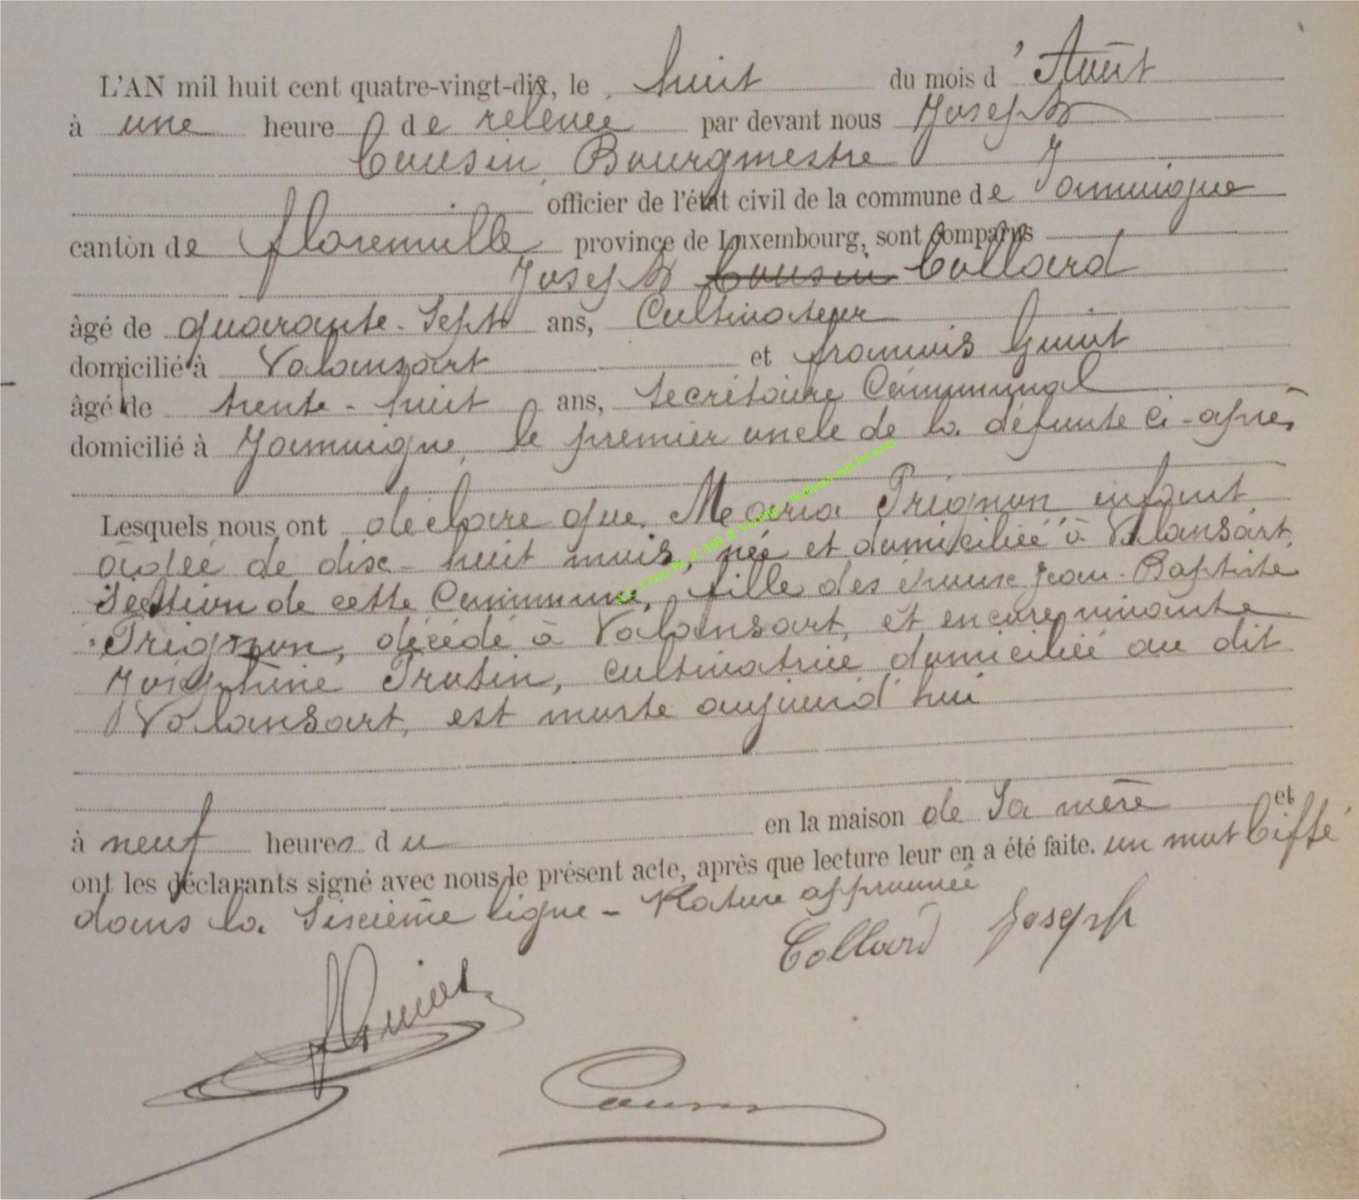 L'AN mil huit cent quatre-vingt-dix, le huit du mois d'Août
à une heure de relevée par devant nous Joseph
Cousin Bourgmestre
officier de l'état civil de la commune de Jamoigne
canton de florenville province de Luxembourg, sont comparus
Joseph Cousin Collard
âgé de quarante-sept ans, Cultivateur
domicilié à Valansart et francois Guiot
âgé de trente-huit ans, Secrétaire Communal
domicilié à Jamoigne, le premier oncle de la défunte ci-après
Lesquels nous ont déclaré que Maria Prignon enfant
âgée de dix-huit mois, née et domiciliée à Valansart
Section de cette Commune, fille des époux Jean-Baptiste
Prignon, décédé à Valansart, et encore vivante
Joséphine Trusin, cultivatrice domiciliée au dit
Valansart, est morte aujourd'hui
à neuf heures du en la maison de Sa mère et
ont les déclarants signé avec nous le présent acte, après que lecture leur en a été faite. un mot biffé
dans la Sixième ligne - Rature approuvée
Collard Joseph
f Guiot
Cousin